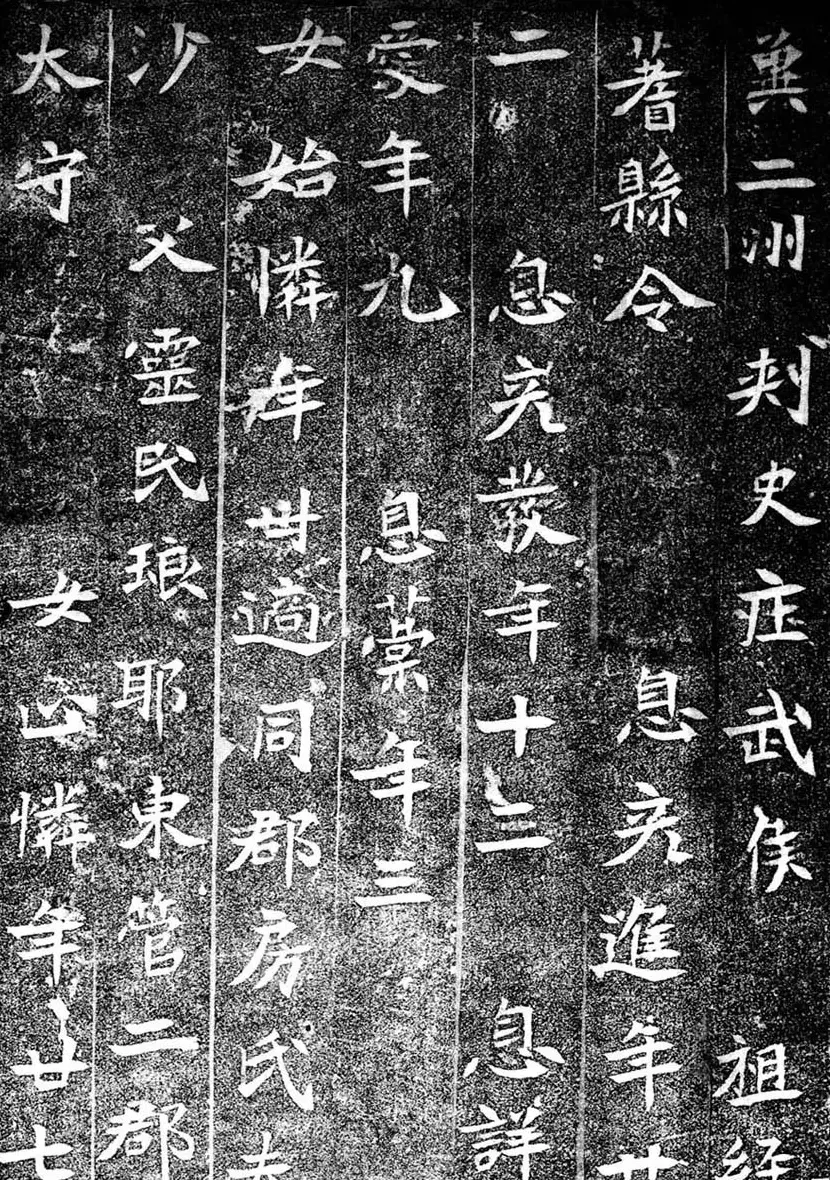 冀二州刺史庄武侯 祖經
蓍縣令 息彦進年廿
二 息彦發年十二 息詳
愛年九 息藁年三
女始憐年卅適同郡房氏夫
沙 父靈民琅耶東管二郡
太守 女止憐年廿七